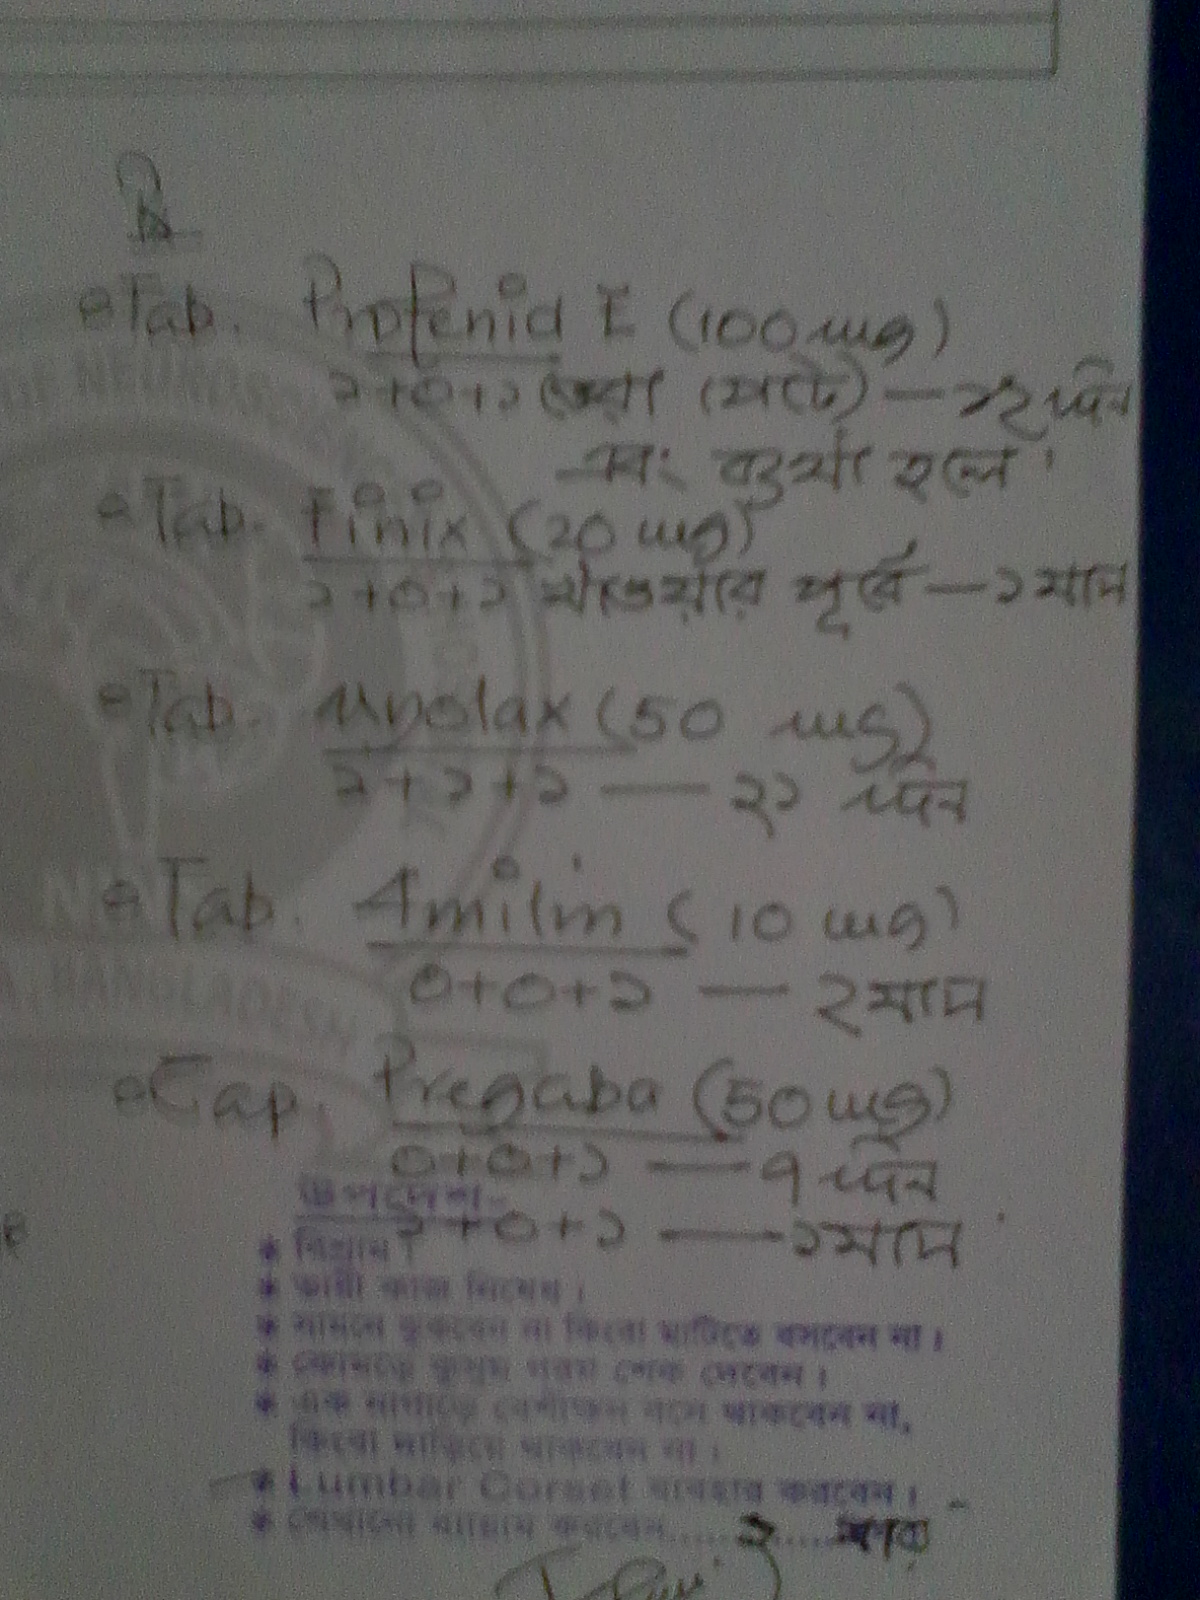 Rx
Tab. Profenid E (100 mg)
১+০+১ ভরা পেটে — ১২ দিন
এবং ব্যথা হলে
Tab. Finix (20 mg)
১+০+১ খাওয়ার পূর্বে — ১ মাস
Tab. Myolax (50 mg)
১+১+১ — ২১ দিন
Tab. Amilin (10 mg)
০+০+১ — ২ মাস
Cap. Pregaba (50 mg)
০+০+১ — ৭ দিন
উপদেশ:-
১+০+১ — ২ মাস
* বিশ্রাম।
* ভারী কাজ নিষেধ।
* সামনে ঝুকবেন না কিংবা মাটিতে বসবেন না।
* কোমড়ে কুসুম গরম সেক দেবেন।
* এক নাগাড়ে বেশীক্ষন বসে থাকবেন না,
কিংবা দাড়িয়ে থাকবেন না।
* Lumbar Corset ব্যবহার করবেন।
* শেখানো ব্যায়াম করবেন......২......
NEUROS
BANGLADESH